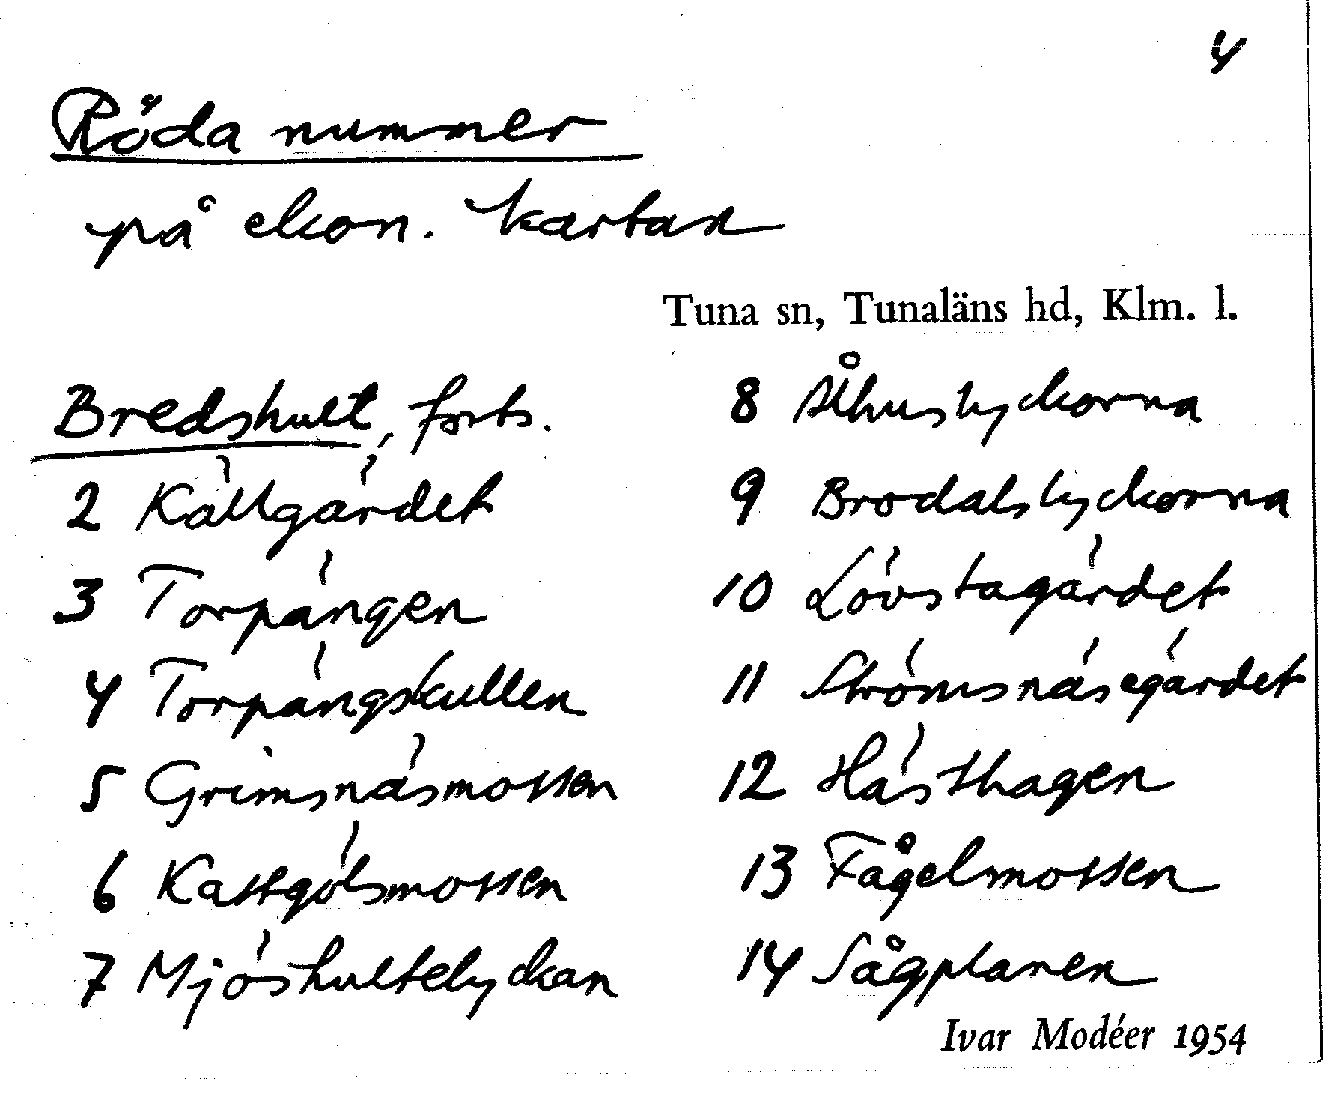 4
Röda nummer
på ekon. kartan
Tuna sn, Tunaläns hd, Klm. l.
Bredshult, forts.
2 Källgärdet
3 Torpängen
4 Torpängskullen
5 Grimsnäsmossen
6 Kattgölsmossen
7 Mjöshultelyckan
8 Ålhuslyckorna
9 Brodalslyckorna
10 Lövstagärdet
11 Strömsnäsegärdet
12 Hästhagen
13 Fågelmossen
14 Sågplanen
Ivar Modéer 1954